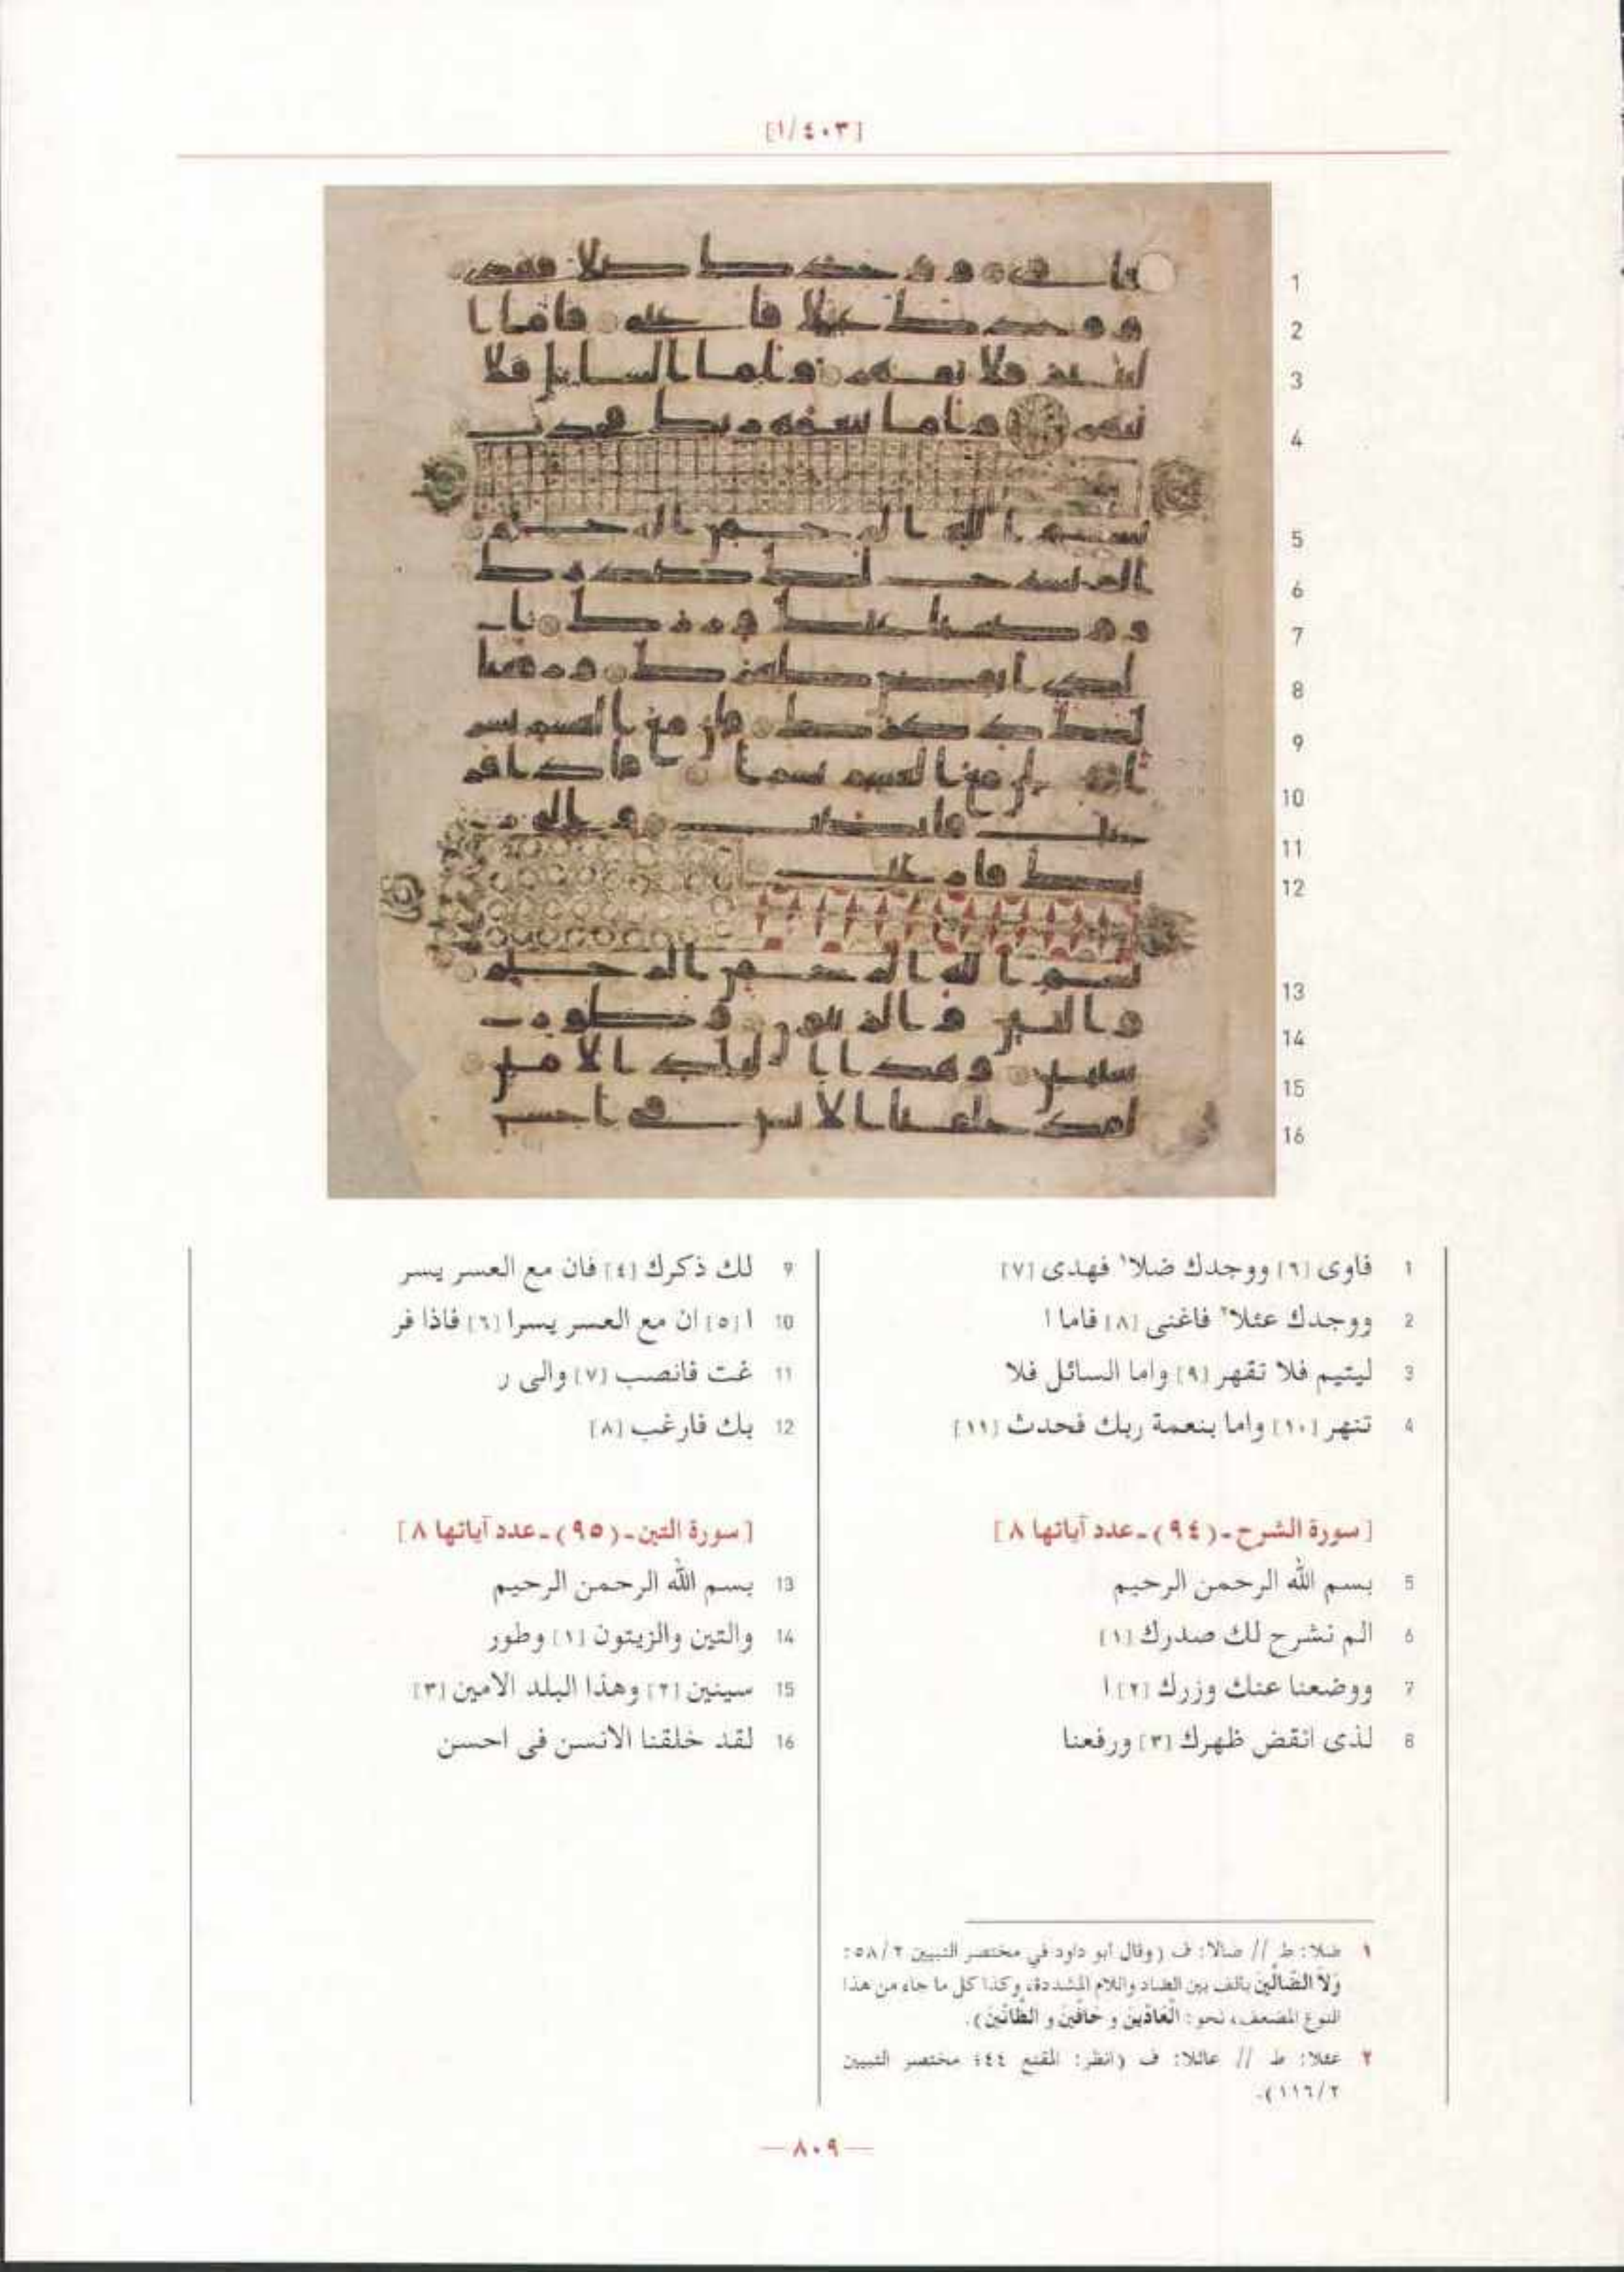 [١/٤٠٣]
1
2
3
4
5
6
7
8
9
10
11
12
13
14
15
16
1 فاوى [٦] ووجدك ضلا١ فهدى [٧]
2 ووجدك عئلا٢ فاغنى [٨] فاما ا
3 ليتيم فلا تقهر [٩] واما السائل فلا
4 تنهر [١٠] واما بنعمة ربك فحدث [١١]
[سورة الشرح ـ (٩٤) ـ عدد آياتها ٨]
5 بسم الله الرحمن الرحيم
6 الم نشرح لك صدرك [١]
7 ووضعنا عنك وزرك [٢] ا
8 لذى انقض ظهرك [٣] ورفعنا
9 لك ذكرك [٤] فان مع العسر يسر
10 ا [٥] ان مع العسر يسرا [٦] فاذا فر
11 غت فانصب [٧] والى ر
12 بك فارغب [٨]
[سورة التين ـ (٩٥) ـ عدد آياتها ٨]
13 بسم الله الرحمن الرحيم
14 والتين والزيتون [١] وطور
15 سينين [٢] وهذا البلد الامين [٣]
16 لقد خلقنا الانسن فى احسن
١ ضلا: ط // ضالا: ف (وقال أبو داود في مختصر التبيين ٥٨/٢:
وَلاَ الضَّالِّينَ بألف بين الضاد واللام المشددة، وكذا كل ما جاء من هذا
النوع المضعف، نحو: الْعَادِّينَ و حَافِّينَ و الظَّانِّينَ).
٢ عئلا: ط // عائلا: ف (انظر: المقنع ٤٤؛ مختصر التبيين
١١٦/٢).
— ٨٠٩ —